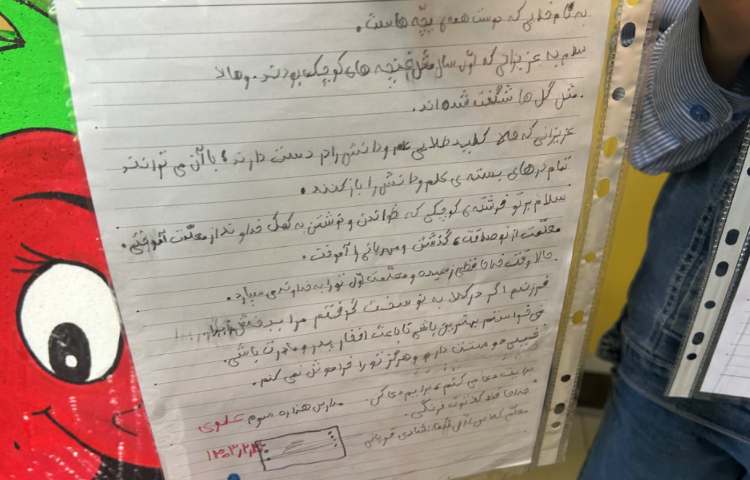 به نام خدایی که دوست همه‌ی بچه هاست.
سلام به عزیزانی که اول سال مثل غنچه های کوچک بودند. و حالا
مثل گل ها شگفته شده‌اند.
عزیزانی که حالا کلید طلایی علم و دانش را در دست دارند و با آن می توانند
تمام درهای بسته‌ی علم و دانش را باز کنند.
سلام بر تو فرشته‌ی کوچکی که خواندن و نوشتن به کمک خداوند از معلمت آموختی.
معلمت از تو صداقت و گذشت و مهربانی را آموخت.
حالا وقت خداحافظی رسیده و معلمت اول تو را به خدا می سپارد.
فرزندم اگر در کلاس به تو سخت گرفتم مرا ببخش زیرا
می خواستم بهترین باشی تا باعث افتخار پدر و مادرت باشی.
خیلی دوستت دارم و هرگز تو را فراموش نمی کنم.
برایت دعا می کنم برایم دعا کن. مدارس هزاره سوم علوی
۱۴۰۳,۲,۲۴